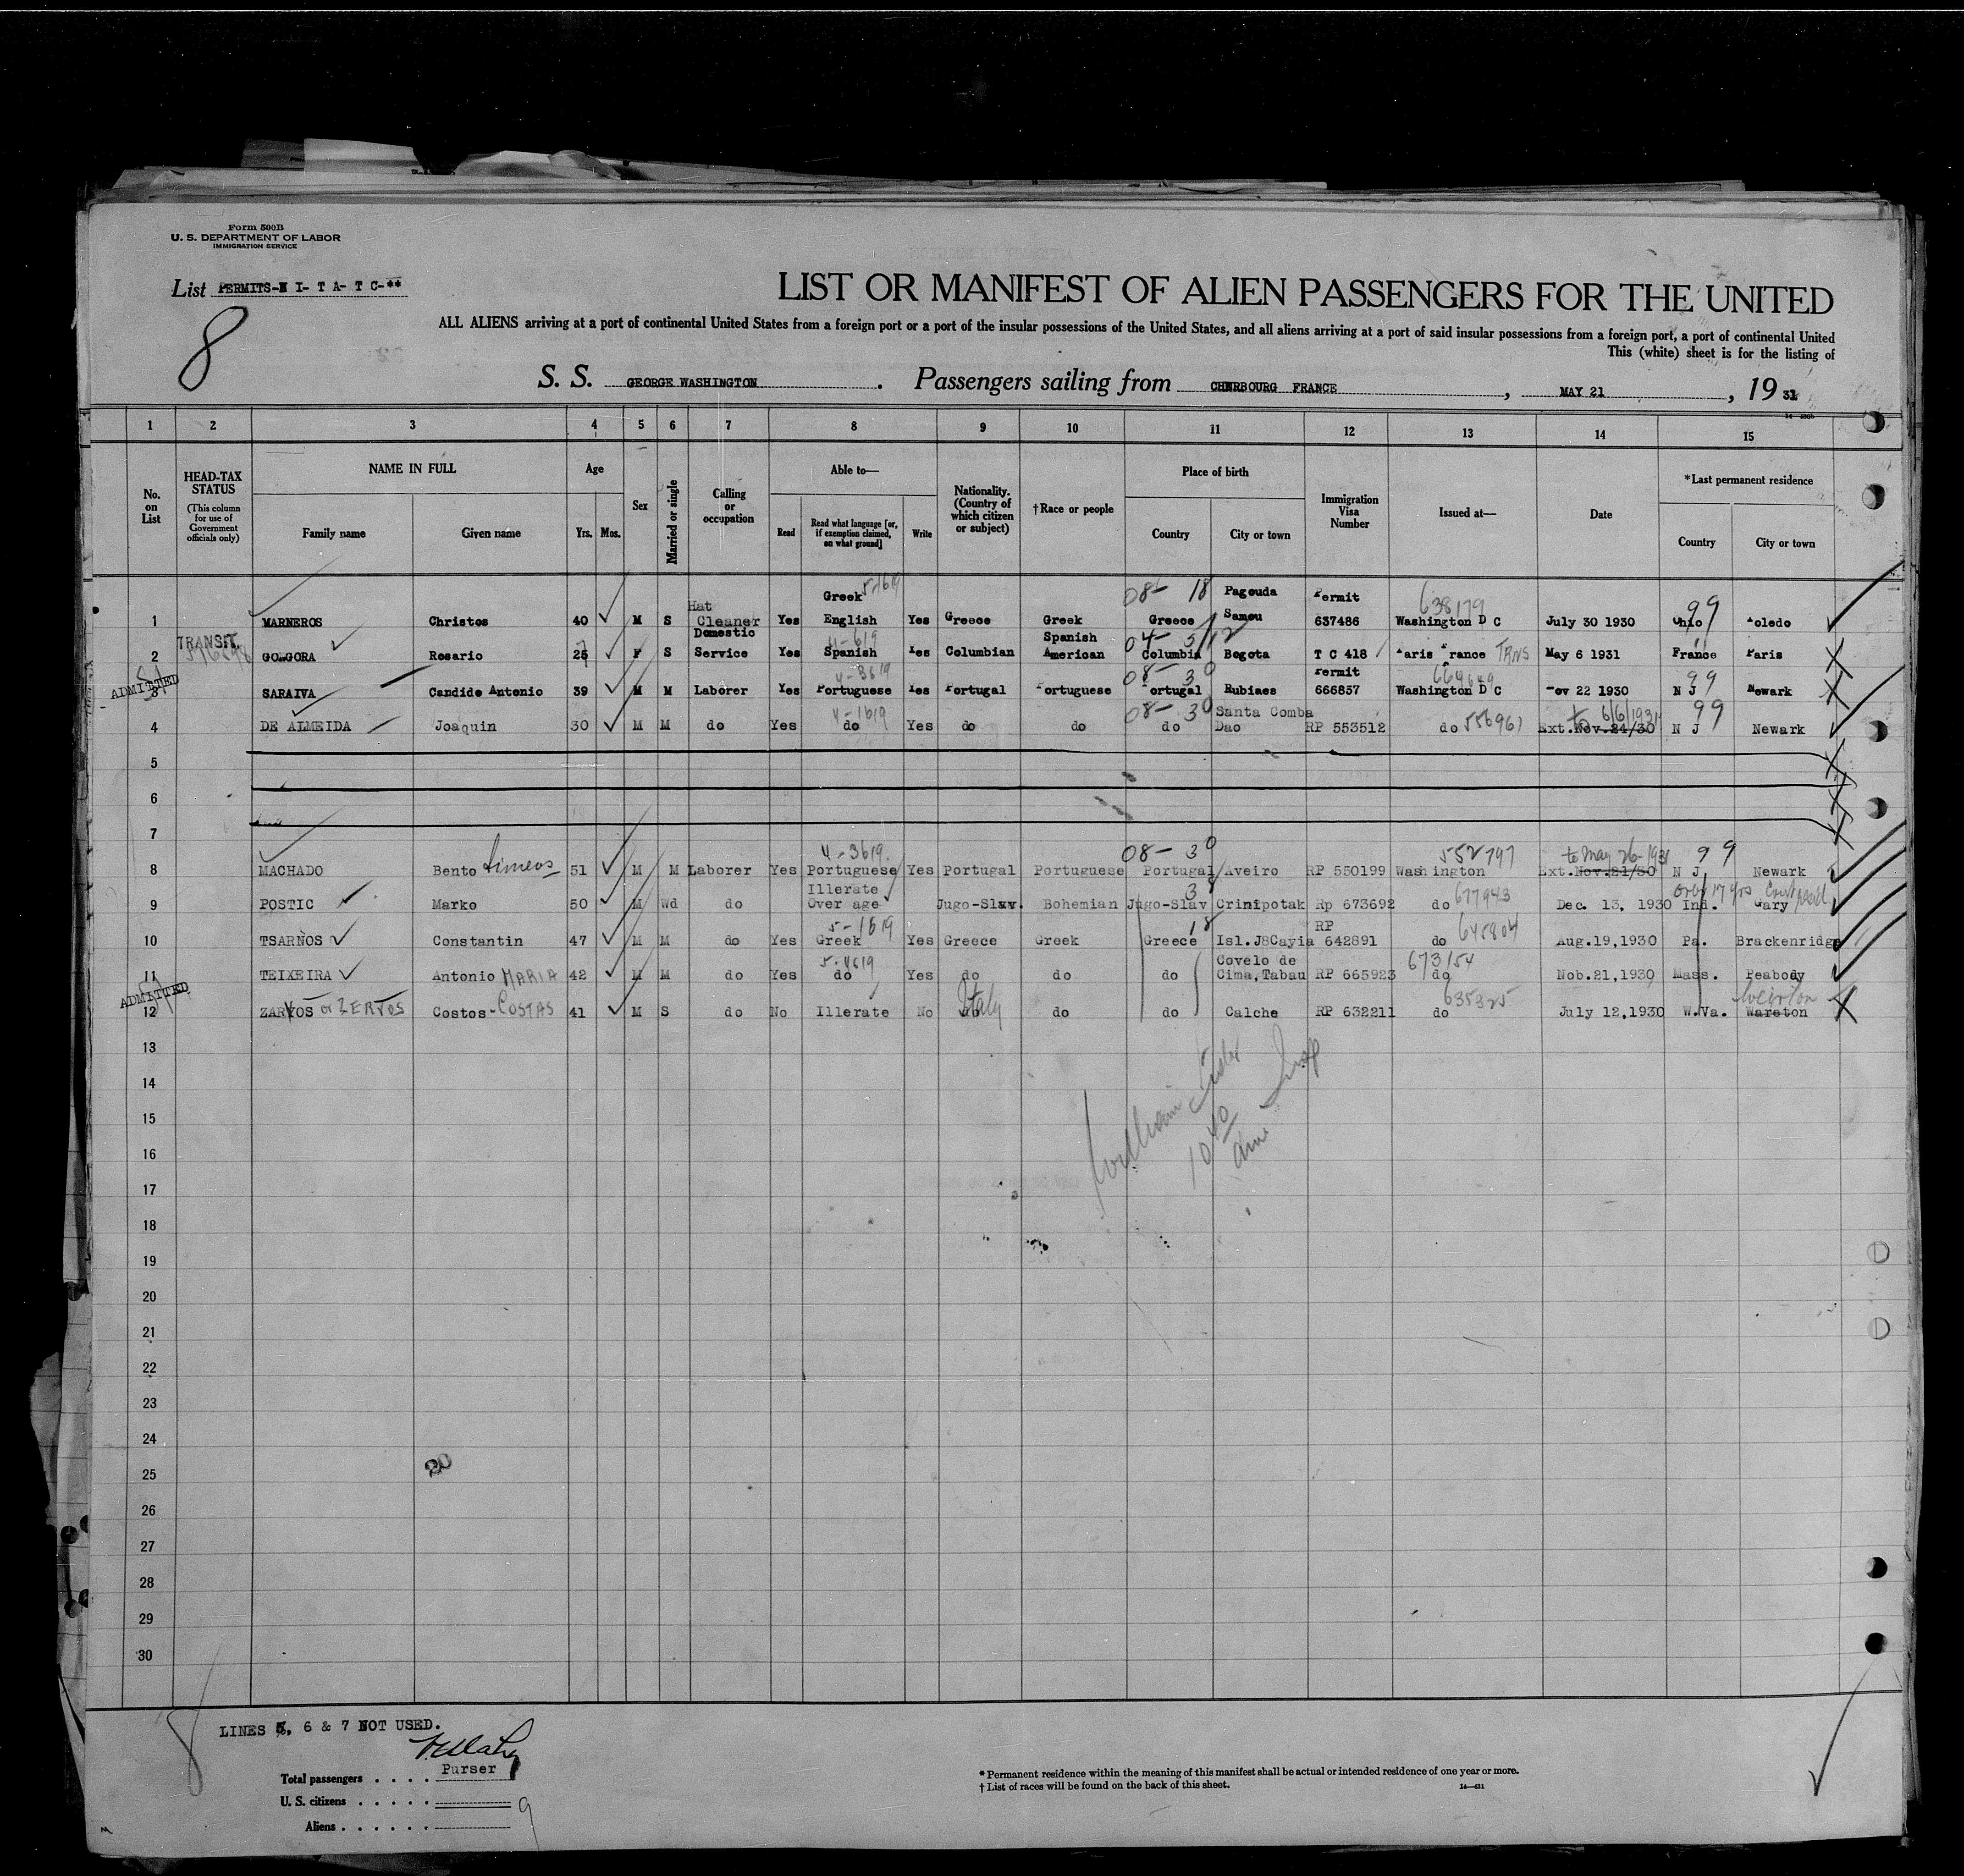 Form 500B
U. S. DEPARTMENT OF LABOR
IMMIGRATION SERVICE
List PERMITS-N I- T A- T C-**
8
LIST OR MANIFEST OF ALIEN PASSENGERS FOR THE UNITED
ALL ALIENS arriving at a port of continental United States from a foreign port or a port of the insular possessions of the United States, and all aliens arriving at a port of said insular possessions from a foreign port, a port of continental United
This (white) sheet is for the listing of
S. S. GEORGE WASHINGTON . Passengers sailing from CHERBOURG FRANCE , MAY 21 , 19 31
1 2 3 4 5 6 7 8 9 10 11 12 13 14 15
No. on List
HEAD-TAX STATUS
(This column for use of Government officials only)
NAME IN FULL
Family name Given name
Age
Yrs. Mos.
Sex
Married or single
Calling or occupation
Able to—
Read
Read what language [or, if exemption claimed, on what ground]
Write
Nationality. (Country of which citizen or subject)
†Race or people
Place of birth
Country City or town
Immigration Visa Number
Issued at—
Date
*Last permanent residence
Country City or town
1 MARNEROS Christos 40 M S Hat Cleaner Yes Greek English 5-1619 Yes Greece Greek 08- 18 Greece Pagouda Samou Permit 637486 638179 Washington D C July 30 1930 Ohio 99 Toledo
TRANSIT
2 GONGORA Rosario 25 F S Domestic Service Yes 4-619 Spanish Yes Columbian Spanish American 04- 5/12 Columbia Bogota T C 418 Paris France TRNS May 6 1931 France Paris
ADMITTED
3 SARAIVA Candido Antonio 39 M M Laborer Yes 4-3619 Portuguese Yes Portugal Portuguese 08- 30 Portugal Rubiaes Permit 666857 664649 Washington D C Nov 22 1930 N J 99 Newark
4 DE ALMEIDA Joaquin 30 M M do Yes 4-1619 do Yes do do 08- 30 do Santa Comba Dao RP 553512 do 556961 Ext. Nov.24/30 to 6/6/1931 N J 99 Newark
5
6
7
8 MACHADO Bento Simeos 51 M M Laborer Yes 4-3619 Portuguese Yes Portugal Portuguese 08- 30 Portugal Aveiro RP 550199 Washington 552797 Ext. Nov.21/30 to May 26-1931 N J 99 Newark
9 POSTIC Marko 50 M Wd do Illerate Over age Jugo-Slav. Bohemian Jugo-Slav Crinipotak Rp 673692 do 677943 Dec. 13, 1930 Ind. Gary
10 TSARNOS Constantin 47 M M do Yes 5-1619 Greek Yes Greece Greek 18 Greece Isl.J8Cayia RP 642891 do 645804 Aug.19,1930 Pa. Brackenridge
11 TEIXEIRA Antonio MARIA 42 M M do Yes 5-4619 do Yes do do do Covelo de Cima,Tabau RP 665923 673154 do Nob.21,1930 Mass. Peabody
ADMITTED
12 ZARYOS or ZERVOS Costos- COSTAS 41 M S do No Illerate No do Italy do do Calche RP 632211 do 635325 July 12,1930 W.Va. Wareton Weirton
13
14
15
16
17
18
19
20
21
22
23
24
25
26
27
28
29
30
10 40 am
20
LINES 5, 6 & 7 NOT USED.
Purser
Total passengers . . . .
U. S. citizens . . . . . 9
Aliens . . . . . .
* Permanent residence within the meaning of this manifest shall be actual or intended residence of one year or more.
† List of races will be found on the back of this sheet.
14—421